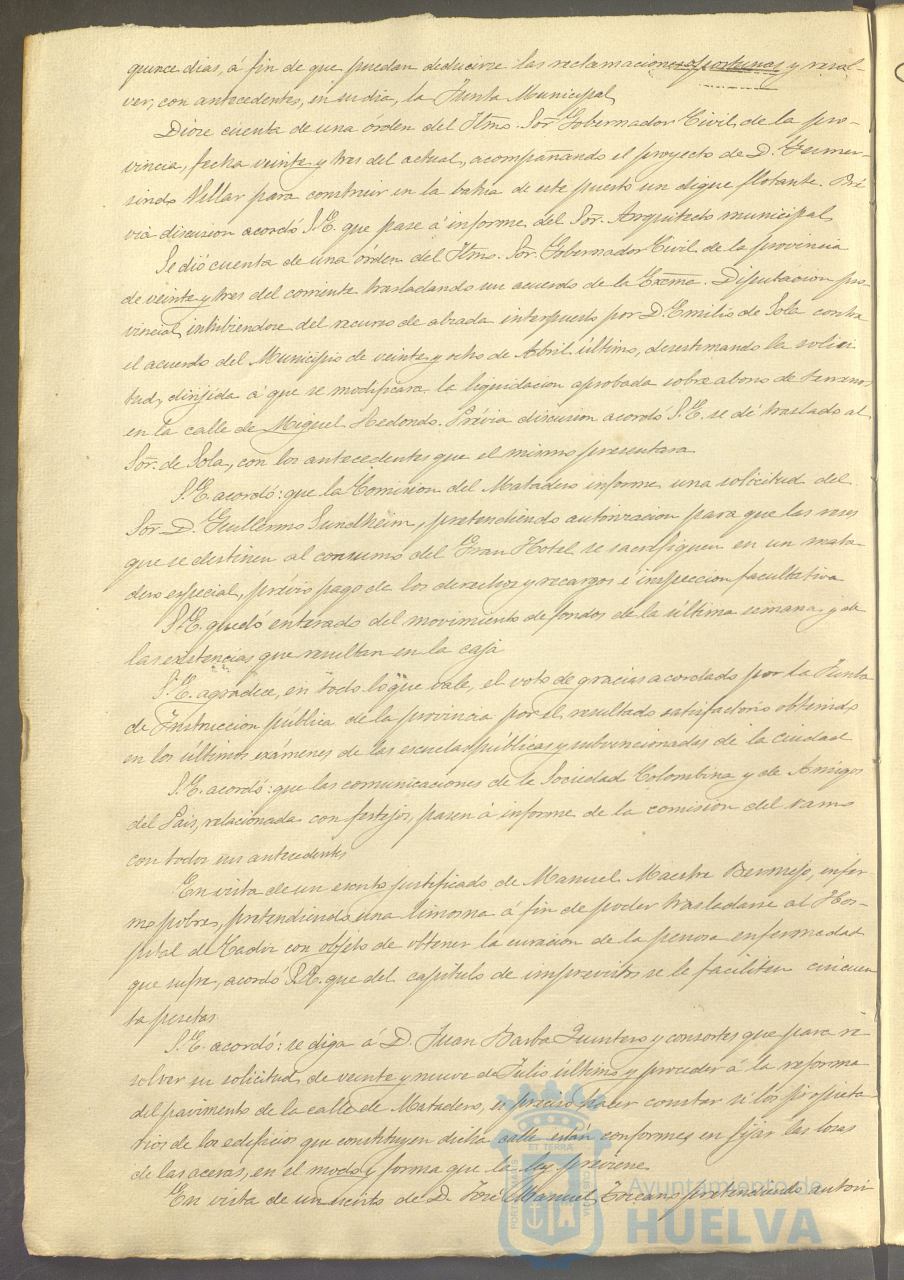 quince dias, á fin de que puedan deducirse las reclamaciones oportunas y resol-
ver, con antecedentes, en su dia, la Junta Municipal
Dióse cuenta de una órden del Iltmo. Sor. Gobernador Civil de la pro-
vincia, fecha veinte y tres del actual, acompañando el proyecto de D. Gumer-
sindo Villar para construir en la bahia de este puerto un dique flotante. Pré
via discusion acordó S.E. que pase á informe del Sor. Arquitecto municipal
Se dió cuenta de una órden del Iltmo. Sor. Gobernador Civil de la provincia
de veinte y tres del corriente trasladando un acuerdo de la Excma. Diputacion pro-
vincial, inhibiendose del recurso de alzada interpuesto por D. Emilio de Sola contra
el acuerdo del Municipio de veinte y ocho de Abril último, desestimando la solici
tud, dirijida á que se modificara la liquidacion aprobada sobre abono de terrenos
en la calle de Miguel Redondo. Prévia discusion acordó S.E. se dé traslado al
Sor. de Sola, con los antecedentes que el mismo presentara
S.E. acordó: que la Comision del Matadero informe una solicitud del
Sor. D. Guillermo Sundheim, pretendiendo autorizacion para que las reses
que se destinen al consumo del Gran Hotel se sacrifiquen en un mata
dero especial, previo pago de los derechos y recargos é inspeccion facultativa
S.E. quedó enterado del movimiento de fondos de la última semana y de
las existencias que resultan en la caja
S.E. agradece, en todo lo que vale, el voto de gracias acordado por la Junta
de Instruccion pública de la provincia por el resultado satisfactorio obtenido
en los últimos exámenes de las escuelas públicas y subvencionadas de la ciudad
S.E. acordó: que las comunicaciones de la Sociedad Colombina y de Amigos
del Pais, relacionada con festejos, pasen á informe de la comision del ramo
con todos sus antecedentes
En vista de un escrito justificado de Manuel Maestre Bermejo, enfer
mo pobre, pretendiendo una limosna á fin de poder trasladarse al Hos-
pital de Cadiz con objeto de obtener la curacion de la penosa enfermedad
que sufre, acordó S.E. que del capítulo de imprevistos se le faciliten cincuen
ta pesetas
S.E. acordó: se diga á D. Juan Barba Quintero y consortes que para re
solver su solicitud de veinte y nueve de Julio último y proceder á la reforma
del pavimento de la calle de Matadero, es preciso hacer constar si los propieta-
rios de los edificios que constituyen dicha calle están conformes en fijar las losas
de las aceras, en el modo y forma que la ley previene
En vista de un escrito de D. José Manuel Toscano pretendiendo autori
Ayuntamiento de
HUELVA